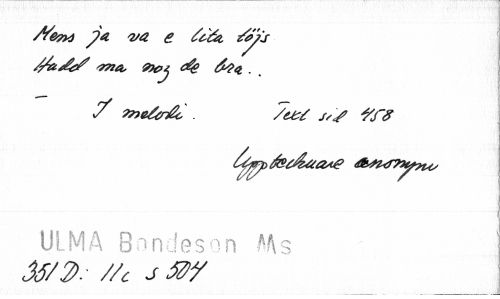 Mens ja va e lita töjs
Hadd ma noz de bra..
–
I melodi. Text sid 458
Upptecknare anonym
ULMA Bondeson Ms
351 D: 11c s 504